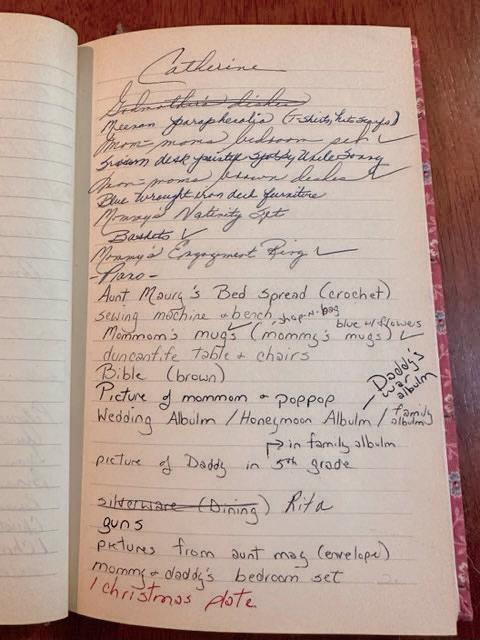 Catherine
Godmother's dishes
Meenan paraphernalia (T-shirts, hats, signs)
Mom-mom's bedroom set ✓
brown desk painted Uncle Sonny
Mom-mom's brown dishes ✓
Blue wrought iron deck furniture
Mommy's Nativity Set
Baskets ✓
Mommy's Engagement Ring ✓
-Piano-
Aunt Maury's Bed spread (crochet)
sewing machine + bench shop-N-bag
blue w/ flowers
Mommom's mugs ✓ (mommy's mugs) ✓
duncanfife Table + chairs
Bible (brown)
Picture of mommom + poppop
Daddy's war albulm
Wedding Albulm / Honeymoon Albulm / family albulm
in family albulm
picture of Daddy in 5th grade
silverware (Dining) Rita
guns
pictures from aunt mag (envelope)
mommy + daddy's bedroom set
1 christmas plate